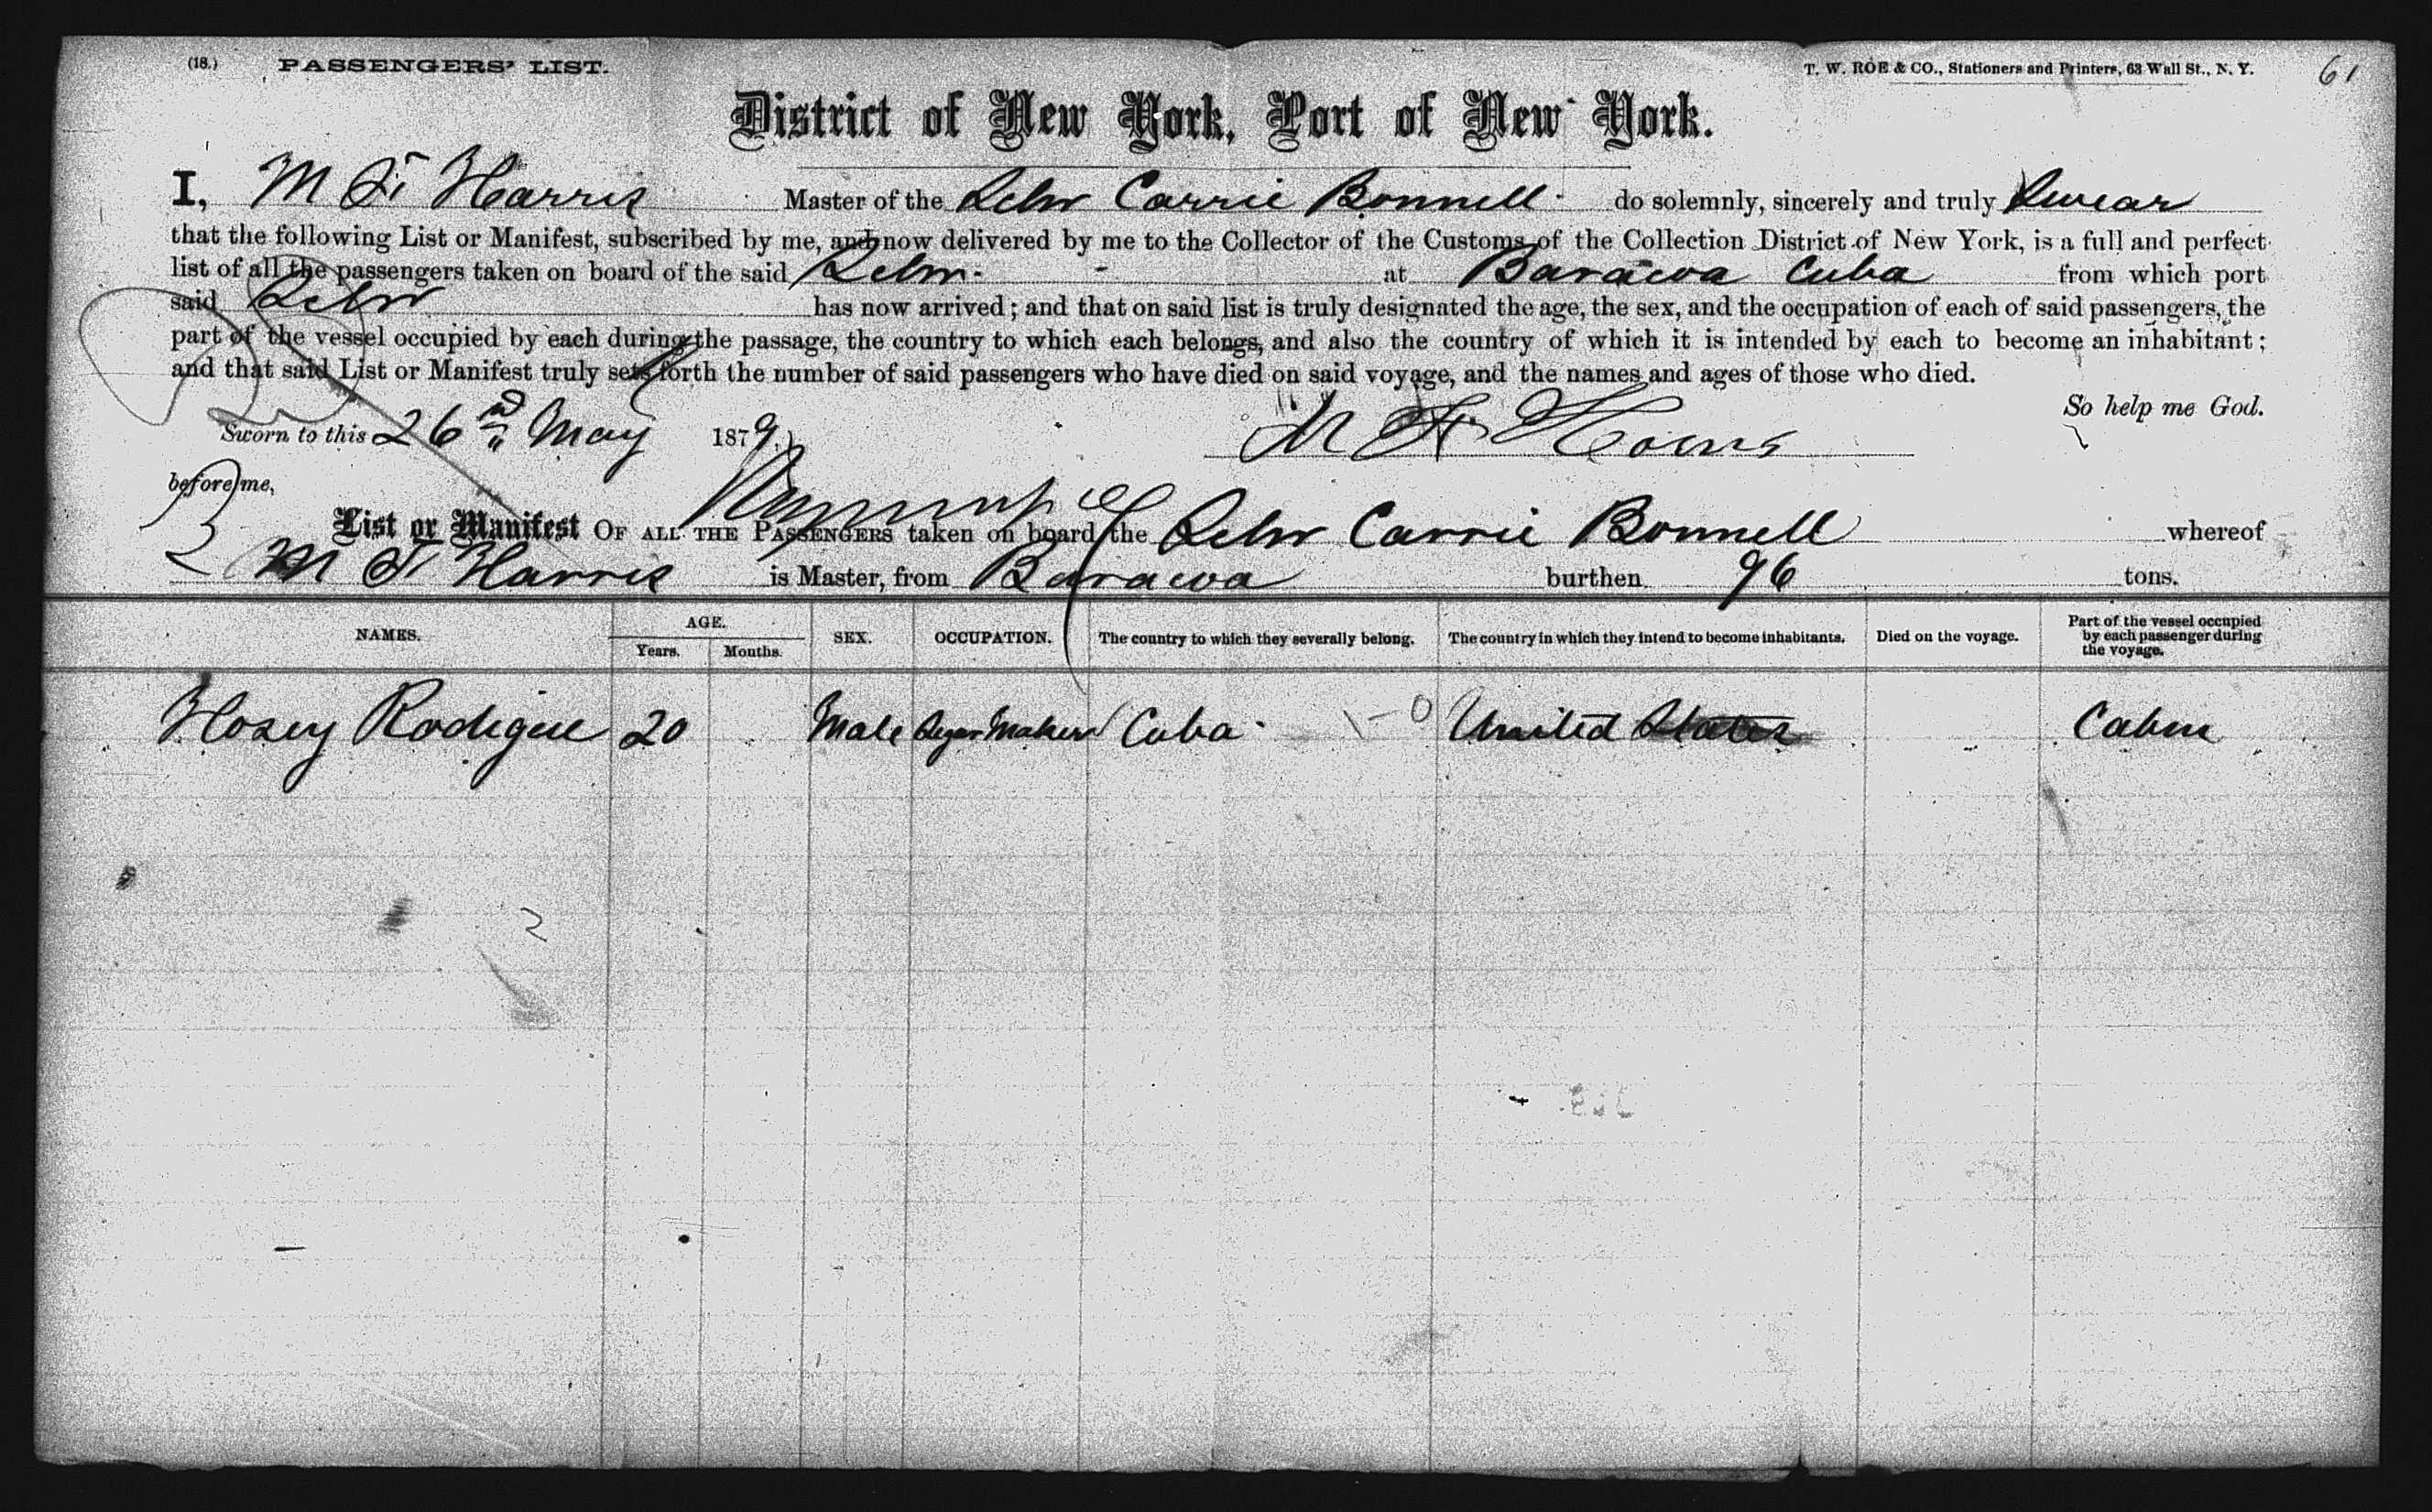 (18.) PASSENGERS' LIST. T. W. ROE & CO., Stationers and Printers, 63 Wall St., N. Y. 61
District of New York, Port of New York.
I, M F Harris Master of the Schr Carrie Bonnell do solemnly, sincerely and truly Swear
that the following List or Manifest, subscribed by me, and now delivered by me to the Collector of the Customs of the Collection District of New York, is a full and perfect
list of all the passengers taken on board of the said Schr at Baracoa Cuba from which port
said Schr has now arrived; and that on said list is truly designated the age, the sex, and the occupation of each of said passengers, the
part of the vessel occupied by each during the passage, the country to which each belongs, and also the country of which it is intended by each to become an inhabitant;
and that said List or Manifest truly sets forth the number of said passengers who have died on said voyage, and the names and ages of those who died.
So help me God.
Sworn to this 26 May 1879. M F Harris
before me,
List or Manifest OF ALL THE PASSENGERS taken on board the Schr Carrie Bonnell whereof
M F Harris is Master, from Baracoa burthen 96 tons.
NAMES. AGE. Years. Months. SEX. OCCUPATION. The country to which they severally belong. The country in which they intend to become inhabitants. Died on the voyage. Part of the vessel occupied by each passenger during the voyage.
Hosey Rodigue 20 Male Segar Maker Cuba 1-0 United States Cabin
2